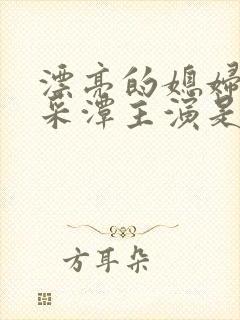 漂亮的媳妇
采潭主演是
方耳朵